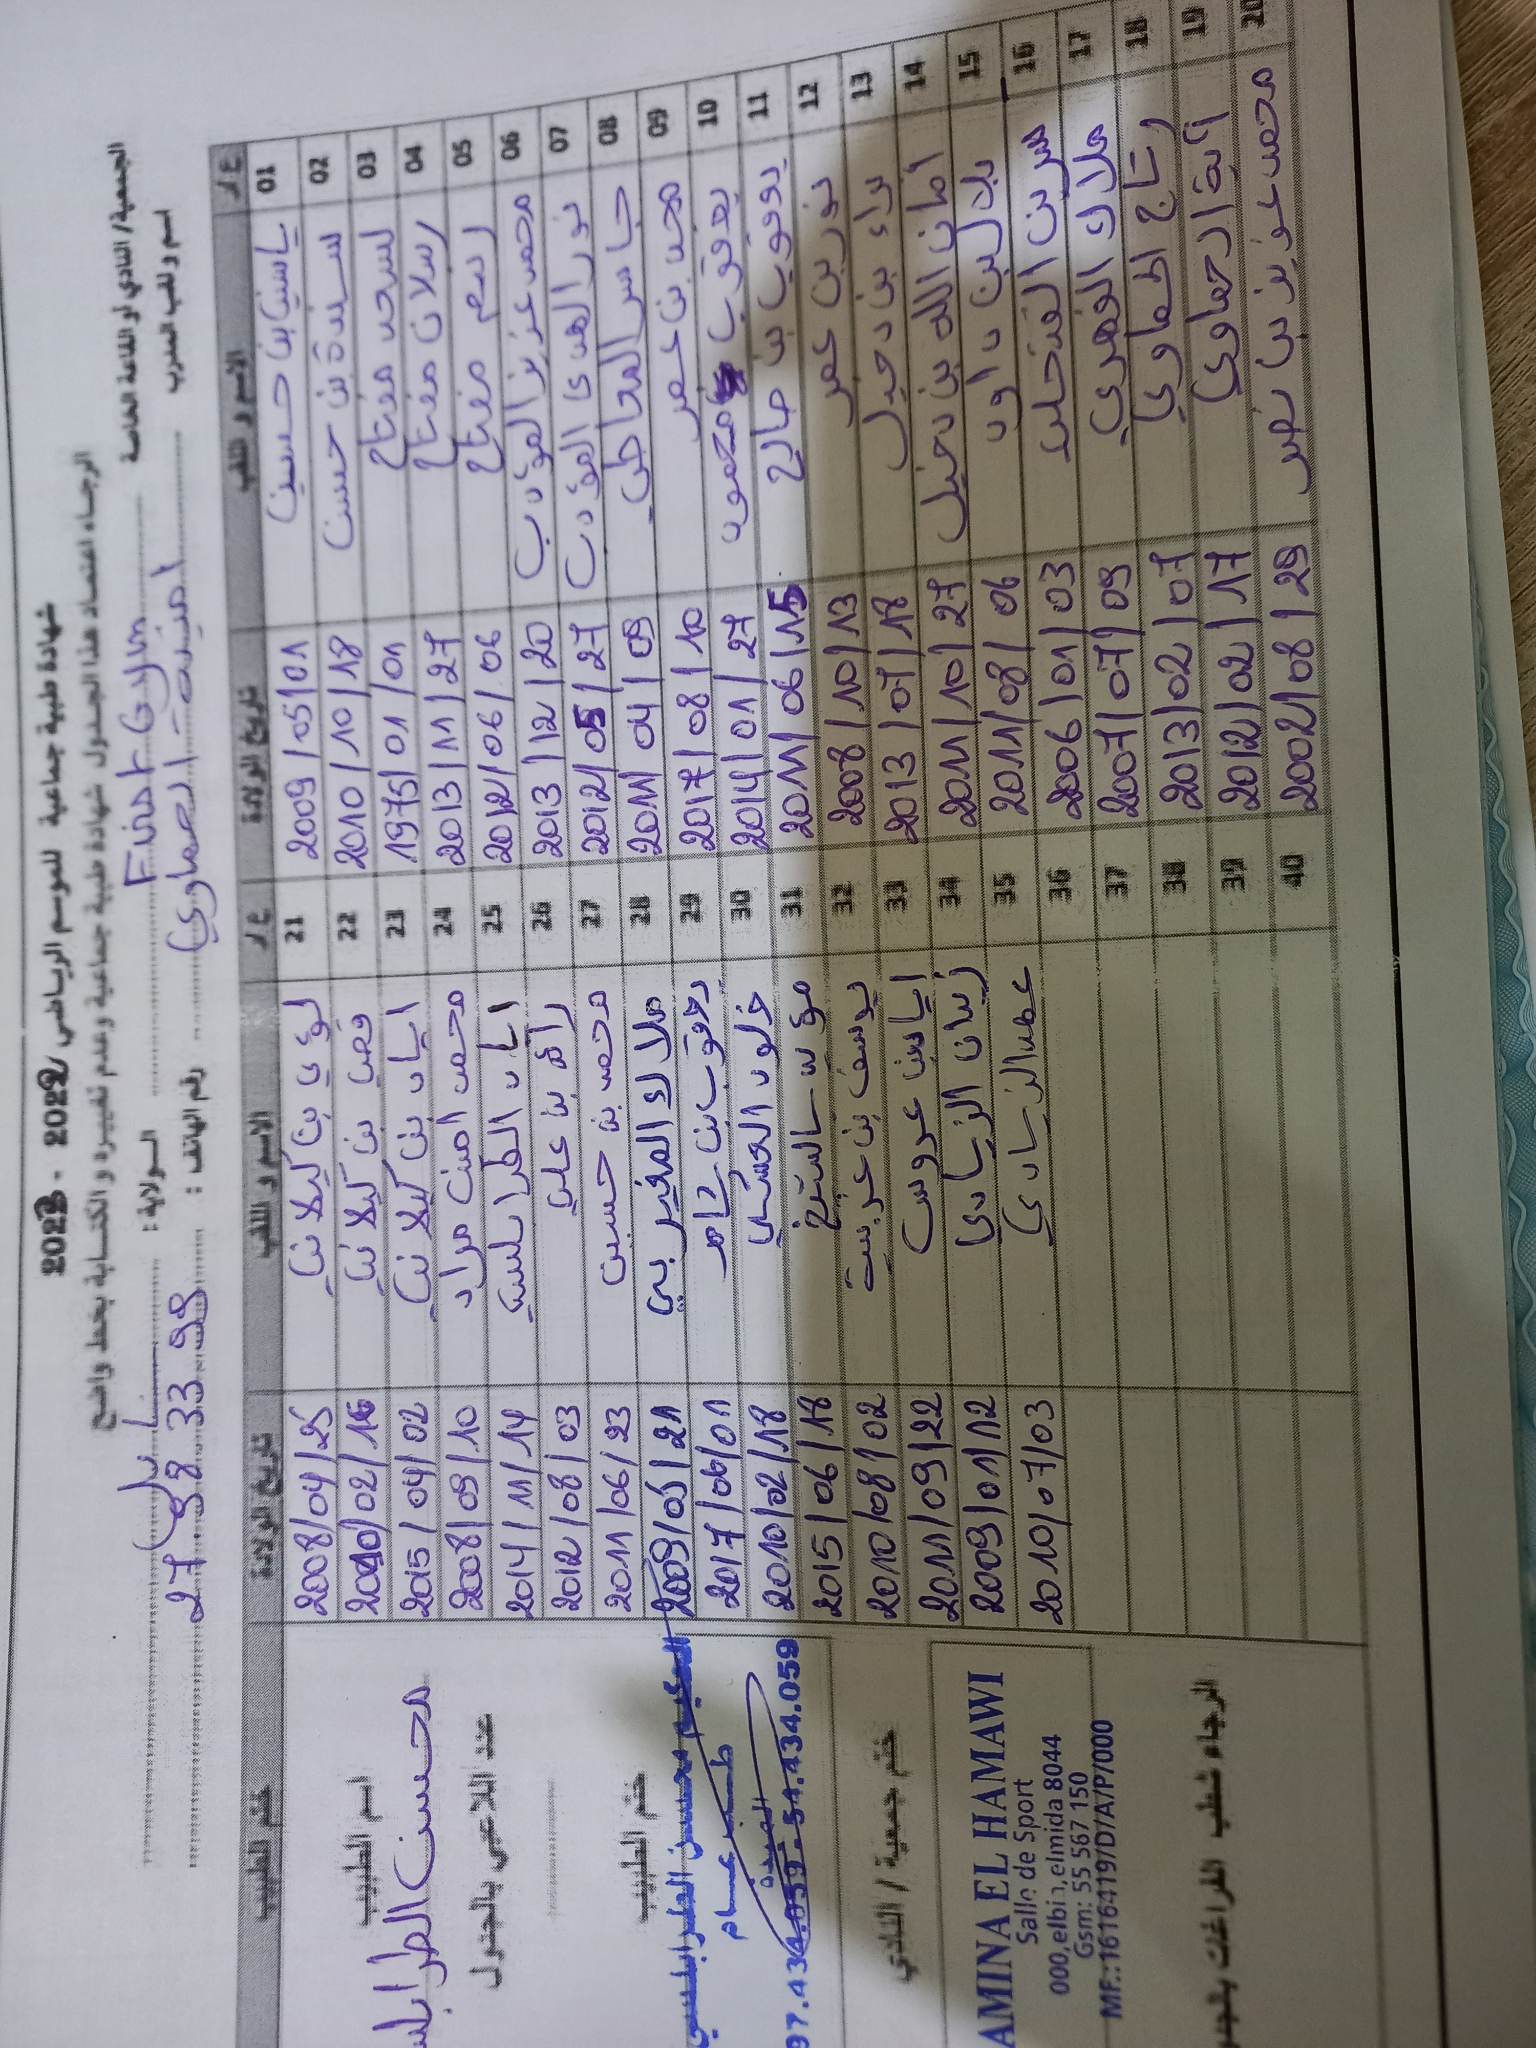 شهادة طبية جماعية للموسم الرياضي 2022 - 2023
الرجاء اعتماد هذا الجدول شهادة طبية جماعية وعدم تغييره و الكتابة بخط واضح
الجمعية/ النادي أو القاعة الخاصة First Gym الولاية : نابل
اسم و لقب المدرب امينة الحماوي رقم الهاتف : 27 98 33 99
ع/ر الاسم و اللقب تاريخ الولادة ع/ر الاسم و اللقب تاريخ الولادة ختم الطبيب
01 ياسين بن حسين 2009/05/01 21 لؤي بن كيلاني 2008/04/25
02 سيدة بن حسن 2010/10/18 22 قصي بن كيلاني 2010/02/16
03 مفتاح 1975/01/01 23 اياد بن كيلاني 2015/04/02
04 رسلان مفتاح 2013/11/27 24 محمد امين مراد 2008/09/10
05 مفتاح 2012/06/06 25 اياد الطرابلسي 2014/11/14
06 محمد عزيز المؤدب 2013/12/20 26 رام بن علي 2012/08/03
07 نور الهدى المؤدب 2012/05/27 27 محمد بن حسين 2011/06/23
08 جاسر 2011/04/09 28 ملاك المغيربي 2009/05/21
09 محمد بن عمر 2017/08/10 29 يعقوب بن 2017/06/01
10 يعقوب محمود 2014/01/27 30 خلود 2010/02/18
11 يعقوب بن صالح 2011/06/15 31 مؤيد 2015/06/18
12 نور بن عمر 2008/10/13 32 يوسف بن 2010/08/02
13 براء بن دخيل 2013/07/18 33 اياس بن عروس 2011/09/22
14 امان الله بن دخيل 2011/10/27 34 زياد الزيادي 2009/01/12
15 بلال بن داود 2011/08/06 35 الزيادي 2010/07/03
16 سيرين 2006/01/03 36
17 ملاك 2007/07/09 37
18 رتاج الحماوي 2013/02/07 38
19 آية الحماوي 2012/02/17 39
20 محمد عزيز بن نصر 2002/08/29 40
اسم الطبيب
محسن الطرابلسي
عدد اللاعبي بالجدول
ختم الطبيب
الحكيم محسن الطرابلسي
طبيب عام
الميدة
97.434.059 - 54.434.059
ختم جمعية / النادي
AMINA EL HAMAWI
Salle de Sport
elmida 8044
Gsm: 55 567 150
MF.:1616419/D/A/P/000
الرجاء شطب الفراغات